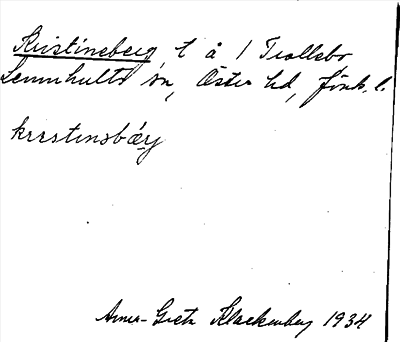 Kristineberg, t å 1 Trollebo
Lemnhults sn, Östra hd, Jönk. l.
krɪstɪnəbæ̀rj
Anna-Greta Klackenberg 1934